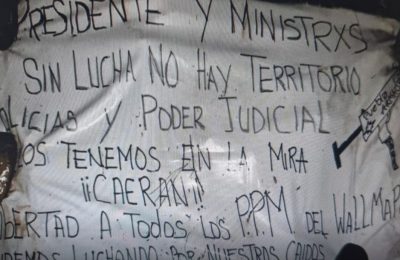 PRESIDENTE Y MINISTRXS
SIN LUCHA NO HAY TERRITORIO
Y PODER JUDICIAL
LOS TENEMOS EN LA MIRA
¡¡CAERAN!!
A TODOS LOS P.P.M. DEL
LUCHANDO POR NUESTROS CAIDOS